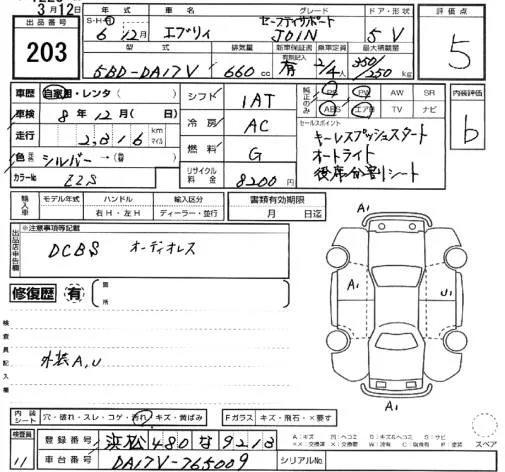 3月12日
出品番号 203
年式 車名 グレード ドア・形状 評価点
S・H・R
6年12月 エブリィ セーフティサポート JOIN 5 V 5
型式 排気量 新車保証書 乗車定員 最大積載量
5BD-DA17V 660cc 有 2/4人 350/250kg
車歴 自家用・レンタ( ) シフト 1AT 純正のみ PS PW AW SR 内装評価
ABS エアB TV ナビ b
車検 8年12月(日) 冷房 AC セールスポイント
走行 2,816 km マイル キーレスプッシュスタート
オートライト
色 シルバー→( ) 燃料 G 後席分割シート
カラーNo. ZZS リサイクル料金 8200円
輸入車 モデル年式 ハンドル 輸入区分 書類有効期限
右H・左H ディーラー・並行 月 日迄
出品店申告欄 ※注意事項等記載
DCBS オーディオレス
修復歴 有 箇所
検査員記入欄
外装A,U
A1
A1 U1
A1
内装シート 穴・破れ・スレ・コゲ・汚れ・キズ・黄ばみ Fガラス キズ・飛石・×要す
検査員 11 登録番号 浜松 480 な 9213
A:キズ U:ヘコミ B:キズ&ヘコミ S:サビ
××:交換済 ×:要交換 W:波有 C:腐食有 P:塗装 スペア
車台番号 DA17V-765009 シリアルNo.